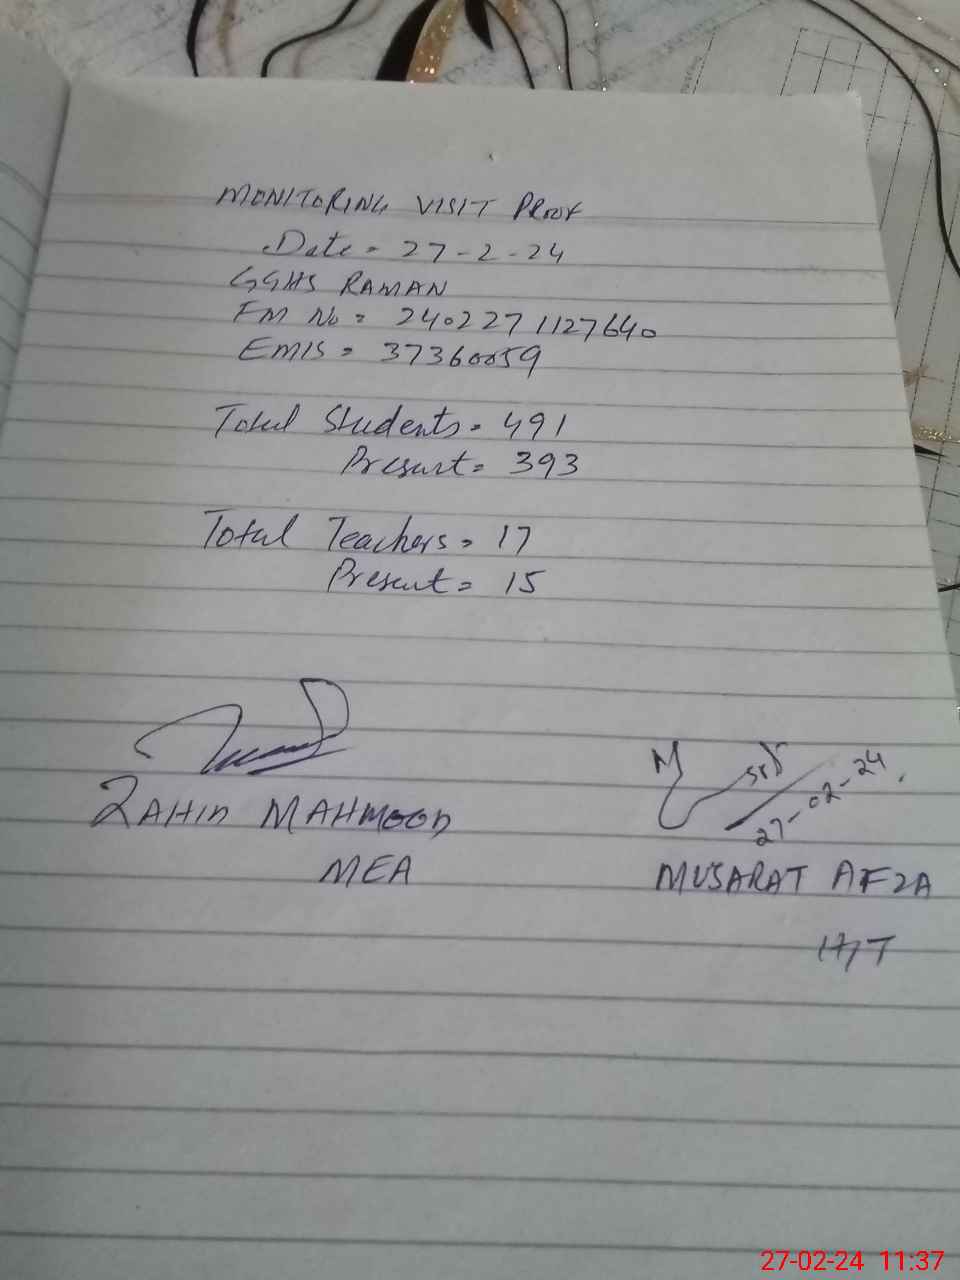 MONITORING VISIT PROOF
Date = 27-2-24
GGHS RAMAN
FM No = 2402271127640
EMIS = 37360059
Total Students = 491
Present = 393
Total Teachers = 17
Present = 15
ZAHID MAHMOOD
MEA
27-02-24.
MUSARAT AFZA
H/T
27-02-24 11:37